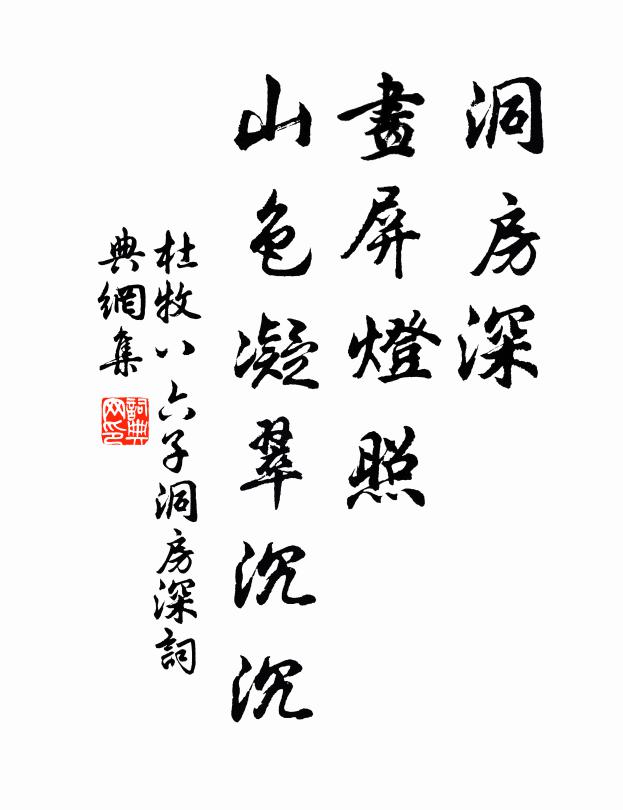 洞房深
畫屏燈照
山色凝翠沉沉
杜牧八六子洞房深詞
典網集
詞典
网印